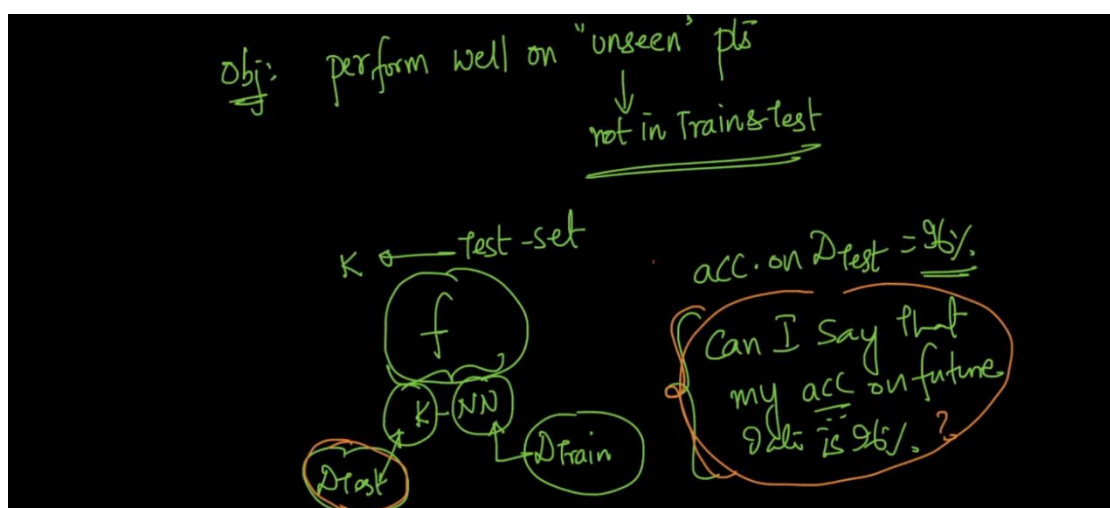 Obj: perform well on "unseen" pts
not in Train & Test
K ← Test-set
f
K-NN
DTest
DTrain
acc. on DTest = 96%.
Can I say that
my acc on future
data is 96%. ?